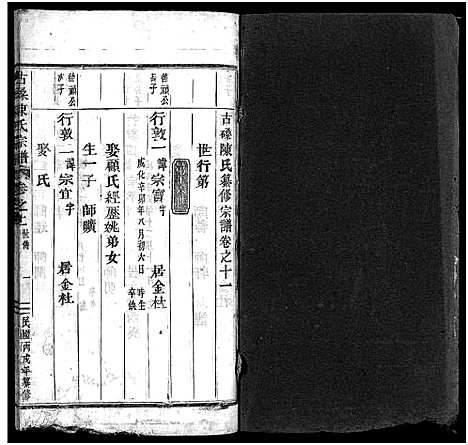 古磉陳氏纂修宗譜卷之十一
世行第
德禎公長子
行敦一諱宗寶字 居金杜
成化辛卯年八月初六日 時生 辛 卒 供
娶顧氏經歷姚弟女
生一子 師曠
行敦二諱宗宜字 居金杜
娶 氏
古磉陳氏宗譜 卷之十一 世傳 一 民國丙戌年纂修